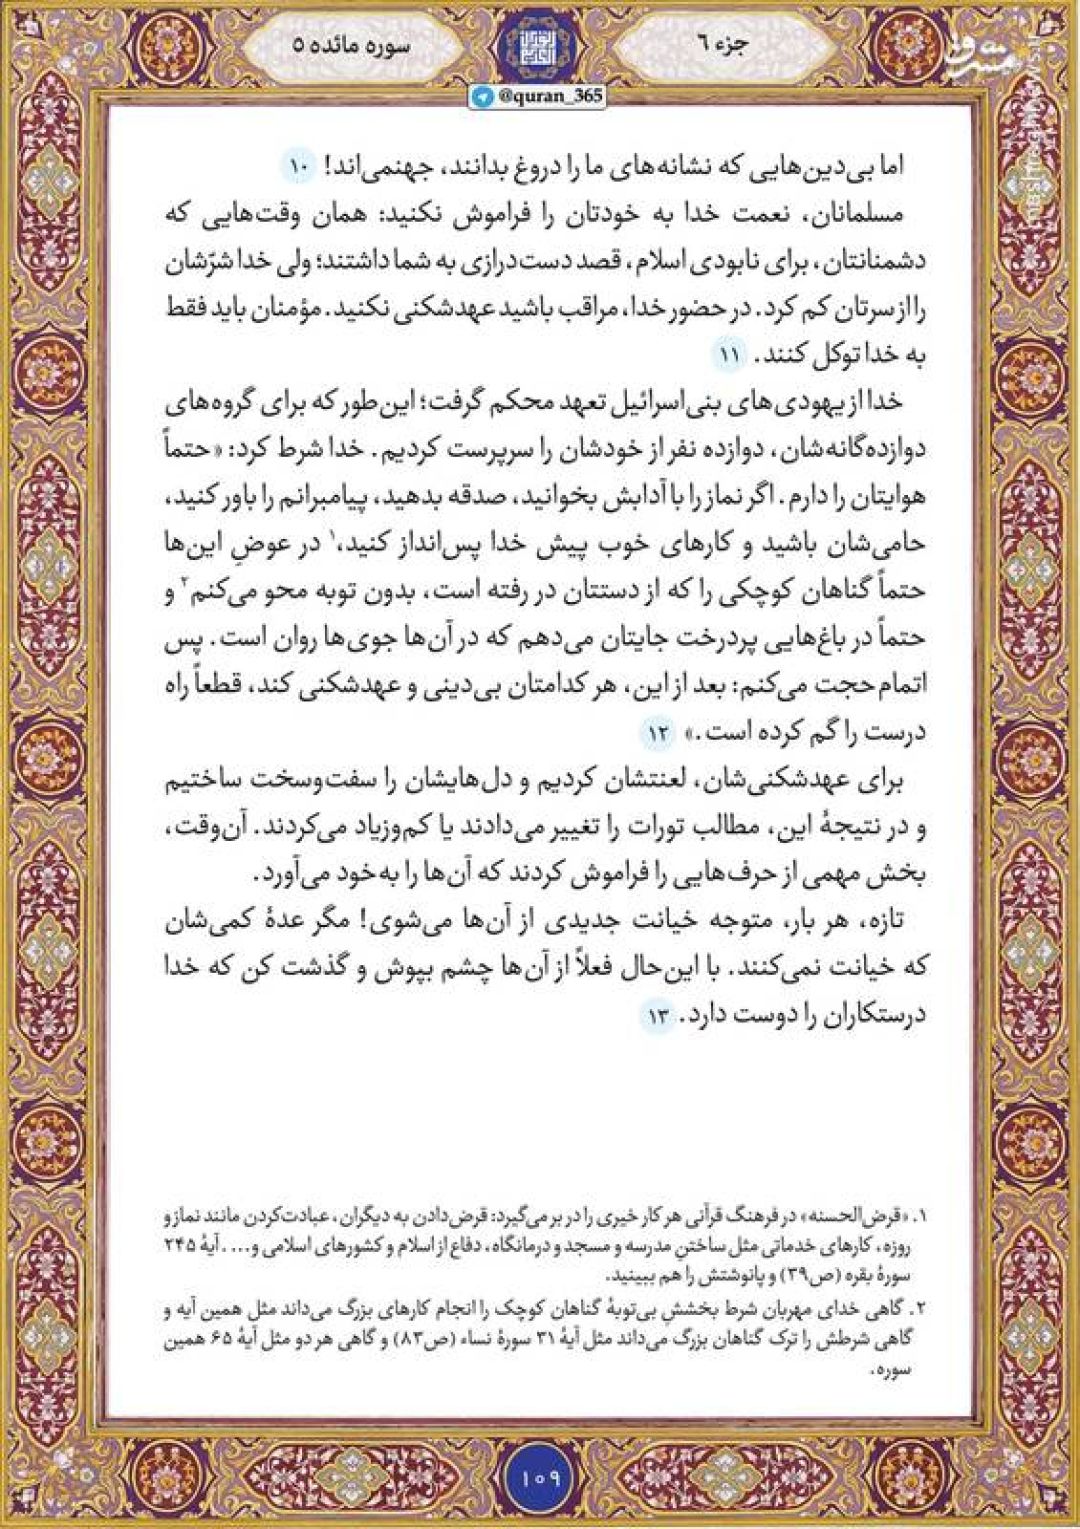 جزء ۶
سوره مائده ۵
مشرق
mashreghnews.ir
@quran_365
اما بی‌دین‌هایی که نشانه‌های ما را دروغ بدانند، جهنمی‌اند! ۱۰
مسلمانان، نعمت خدا به خودتان را فراموش نکنید: همان وقت‌هایی که
دشمنانتان، برای نابودی اسلام، قصد دست‌درازی به شما داشتند؛ ولی خدا شرّشان
را از سرتان کم کرد. در حضور خدا، مراقب باشید عهدشکنی نکنید. مؤمنان باید فقط
به خدا توکل کنند. ۱۱
خدا از یهودی‌های بنی‌اسرائیل تعهد محکم گرفت؛ این‌طور که برای گروه‌های
دوازده‌گانه‌شان، دوازده نفر از خودشان را سرپرست کردیم. خدا شرط کرد: «حتماً
هوایتان را دارم. اگر نماز را با آدابش بخوانید، صدقه بدهید، پیامبرانم را باور کنید،
حامی‌شان باشید و کارهای خوب پیش خدا پس‌انداز کنید،۱ در عوضِ این‌ها
حتماً گناهان کوچکی را که از دستتان در رفته است، بدون توبه محو می‌کنم۲ و
حتماً در باغ‌هایی پردرخت جایتان می‌دهم که در آن‌ها جوی‌ها روان است. پس
اتمام حجت می‌کنم: بعد از این، هر کدامتان بی‌دینی و عهدشکنی کند، قطعاً راه
درست را گم کرده است.» ۱۲
برای عهدشکنی‌شان، لعنتشان کردیم و دل‌هایشان را سفت‌وسخت ساختیم
و در نتیجهٔ این، مطالب تورات را تغییر می‌دادند یا کم‌وزیاد می‌کردند. آن‌وقت،
بخش مهمی از حرف‌هایی را فراموش کردند که آن‌ها را به‌خود می‌آورد.
تازه، هر بار، متوجه خیانت جدیدی از آن‌ها می‌شوی! مگر عدهٔ کمی‌شان
که خیانت نمی‌کنند. با این‌حال فعلاً از آن‌ها چشم بپوش و گذشت کن که خدا
درستکاران را دوست دارد. ۱۳
۱. «قرض‌الحسنه» در فرهنگ قرآنی هر کار خیری را در بر می‌گیرد: قرض‌دادن به دیگران، عبادت‌کردن مانند نماز و
روزه، کارهای خدماتی مثل ساختنِ مدرسه و مسجد و درمانگاه، دفاع از اسلام و کشورهای اسلامی و... . آیهٔ ۲۴۵
سورهٔ بقره (ص۳۹) و پانوشتش را هم ببینید.
۲. گاهی خدای مهربان شرط بخششِ بی‌توبهٔ گناهان کوچک را انجام کارهای بزرگ می‌داند مثل همین آیه و
گاهی شرطش را ترک گناهان بزرگ می‌داند مثل آیهٔ ۳۱ سورهٔ نساء (ص۸۳) و گاهی هر دو مثل آیهٔ ۶۵ همین
سوره.
۱۰۹